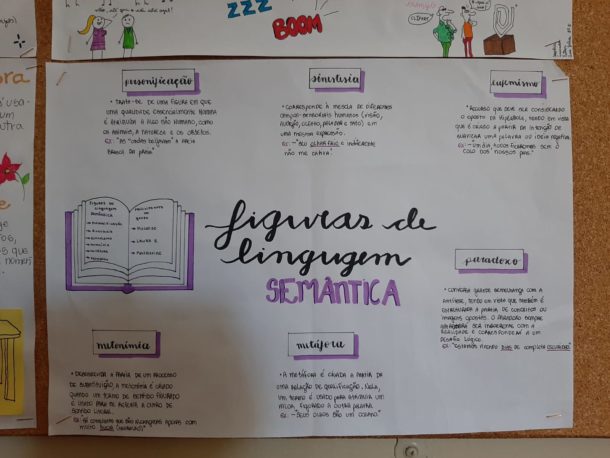 ZZZ
BOOM
personificação
• TRATA-SE DE UMA FIGURA EM QUE
UMA QUALIDADE ESSENCIALMENTE HUMANA
É ATRIBUÍDA A ALGO NÃO HUMANO, COMO
OS ANIMAIS, A NATUREZA E OS OBJETOS.
EX: "AS ONDAS BEIJAVAM A AREIA
BRANCA DA PRAIA"
sinestesia
• CORRESPONDE À MESCLA DE DIFERENTES
SENSORIAIS HUMANOS (VISÃO,
AUDIÇÃO, OLFATO, PALADAR E TATO) EM
UMA MESMA EXPRESSÃO.
EX: -"SEU OLHAR FRIO E INDIFERENTE
NÃO ME CATIVA".
eufemismo
• RECURSO QUE DEVE SER CONSIDERADO
O OPOSTO DA HIPÉRBOLE, TENDO EM VISTA
QUE É CRIADO A PARTIR DA INTENÇÃO DE
SUAVIZAR UMA PALAVRA OU IDEIA NEGATIVA.
EX: -"UM DIA, TODOS FICAREMOS SEM
COLO DOS NOSSOS PAIS."
FIGURAS DE
LINGUAGEM
SEMÂNTICA
figuras de
lingugem
SEMÂNTICA
paradoxo
• CONSERVA GRANDE SEMELHANÇA COM A
ANTÍTESE, TENDO EM VISTA QUE TAMBÉM É
ESTRUTURADO A PARTIR DE CONCEITOS OU
IMAGENS OPOSTAS. O PARADOXO SEMPRE
SERÁ INCOERENTE COM A
REALIDADE E CORRESPONDERÁ A UM
DESAFIO LÓGICO.
EX: "ESTAMOS VIVENDO DIAS DE COMPLETA ESCURIDÃO"
metonímia
• DESENVOLVIDA A PARTIR DE UM PROCESSO
DE SUBSTITUIÇÃO, A METONÍMIA É CRIADA
QUANDO UM TERMO DE SENTIDO FIGURADO
É USADO PARA SE REFERIR A OUTRO DE
SENTIDO LITERAL.
EX: SÓ CONQUISTA QUEM SE
MUITO SUOR
metáfora
• A METÁFORA É CRIADA A PARTIR DA
UMA RELAÇÃO DE QUALIFICAÇÃO. NELA,
UM TERMO É USADO PARA ATRIBUIR UM
VALOR, FIGURADO A OUTRA PALAVRA.
EX: -"SEUS OLHOS SÃO UM OCEANO."